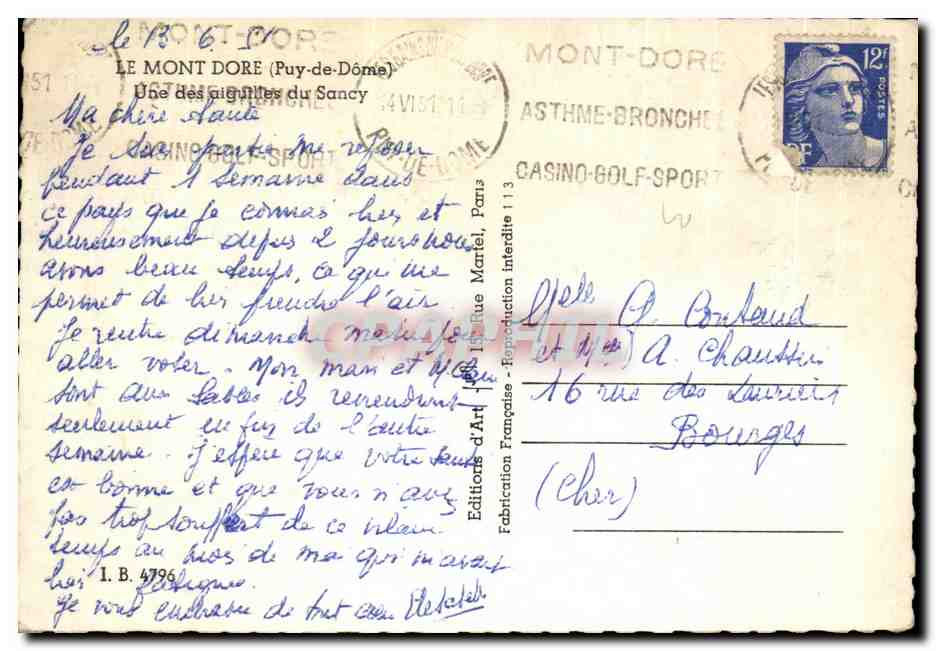 le 13.6.51
MONT-DORE
LE MONT DORE (Puy-de-Dôme)
Une des aiguilles du Sancy
ASTHME-BRONCHE
CASINO-GOLF-SPORT
Ma chère tante
Je suis partie me reposer
pendant 1 semaine dans
ce pays que je connais bien et
heureusement depuis 2 jours nous
avons beau temps, ce qui me
permet de bien prendre l'air.
Je rentre dimanche matin pour
aller voter. Mon mari et
sont aux Sables ils reviendront
seulement en fin de l'autre
semaine. J'espère que votre santé
est bonne et que vous n'avez
pas trop souffert de ce vilain
temps au mois de mai qui m'avait
bien fatiguée.
I. B. 4796
Je vous embrasse de tout coeur
4 VI 51
PUY-DE-DOME
MONT-DORE
ASTHME-BRONCHE
CASINO-GOLF-SPORT
12F
POSTES
RF
Editions d'Art - 15, Rue Martel, Paris
Fabrication Française - Reproduction interdite 113
CPARAMA
Melle A. Contaud
et Mme A. Chaussin
16 rue des Lauriers
Bourges
(Cher)